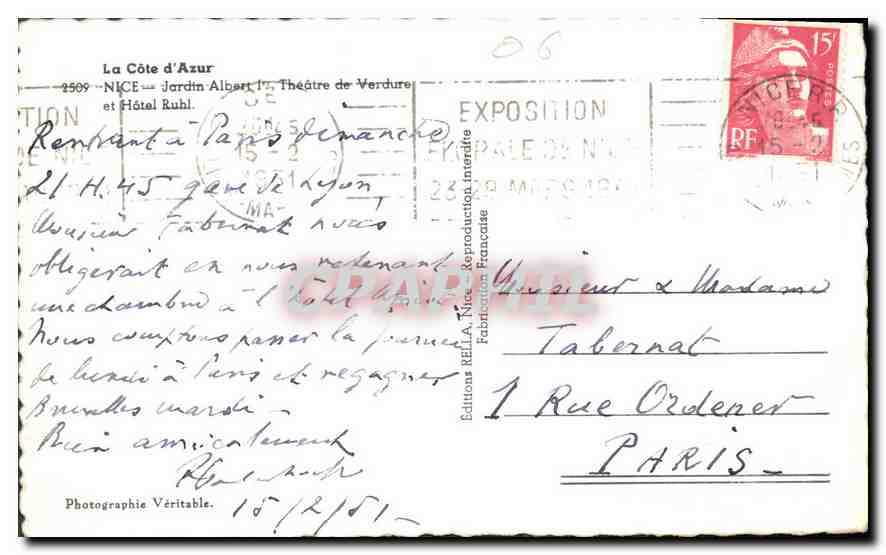 La Côte d'Azur
2509 — NICE — Jardin Albert 1er Théâtre de Verdure
et Hôtel Ruhl.
06
15F
POSTES
RF
EXPOSITION
FLORALE DE NICE
23-28 MARS
NICE R.P.
15-2
1951
Rentrant à Paris dimanche
21 H. 45 gare de Lyon
Monsieur Tabernat nous
obligerait en nous retenant
une chambre à l'hôtel
Nous comptons passer la journée
de lundi à Paris et regagner
Bruxelles mardi —
Bien amicalement
15/2/51 —
Photographie Véritable.
Editions RELLA, Nice — Reproduction interdite
Fabrication Française
CPAPHIL
Monsieur & Madame
Tabernat
1 Rue Ordener
PARIS —